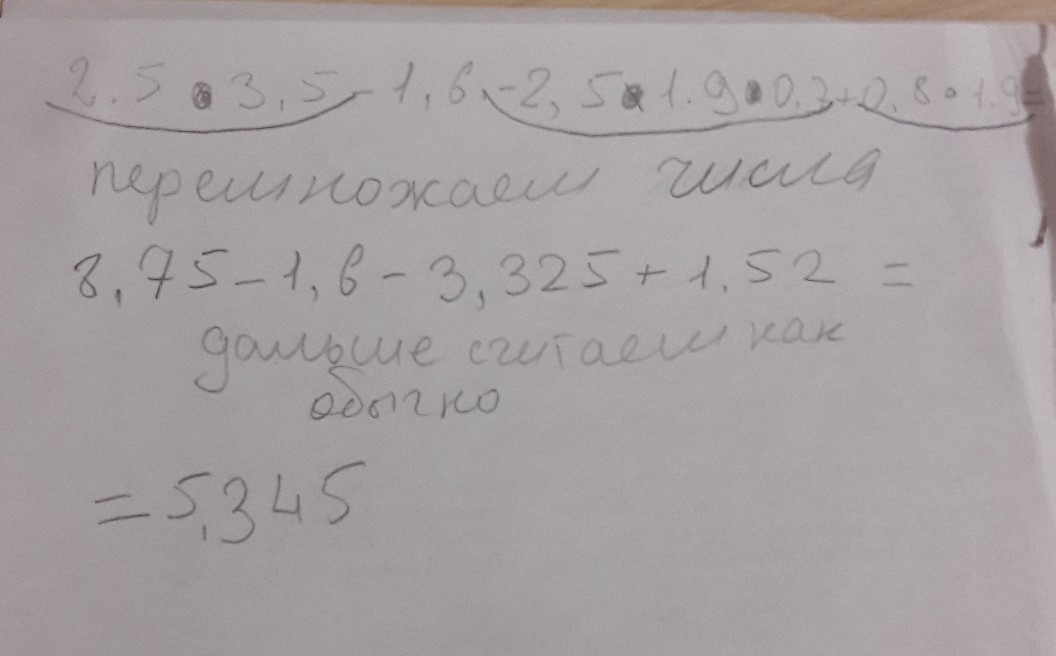 2.5 • 3,5 - 1,6 - 2,5 • 1.9 • 0.7 + 0,8 • 1.9 =
перемножаем числа
8,75 - 1,6 - 3,325 + 1,52 =
дальше считаем как
обычно
= 5,345